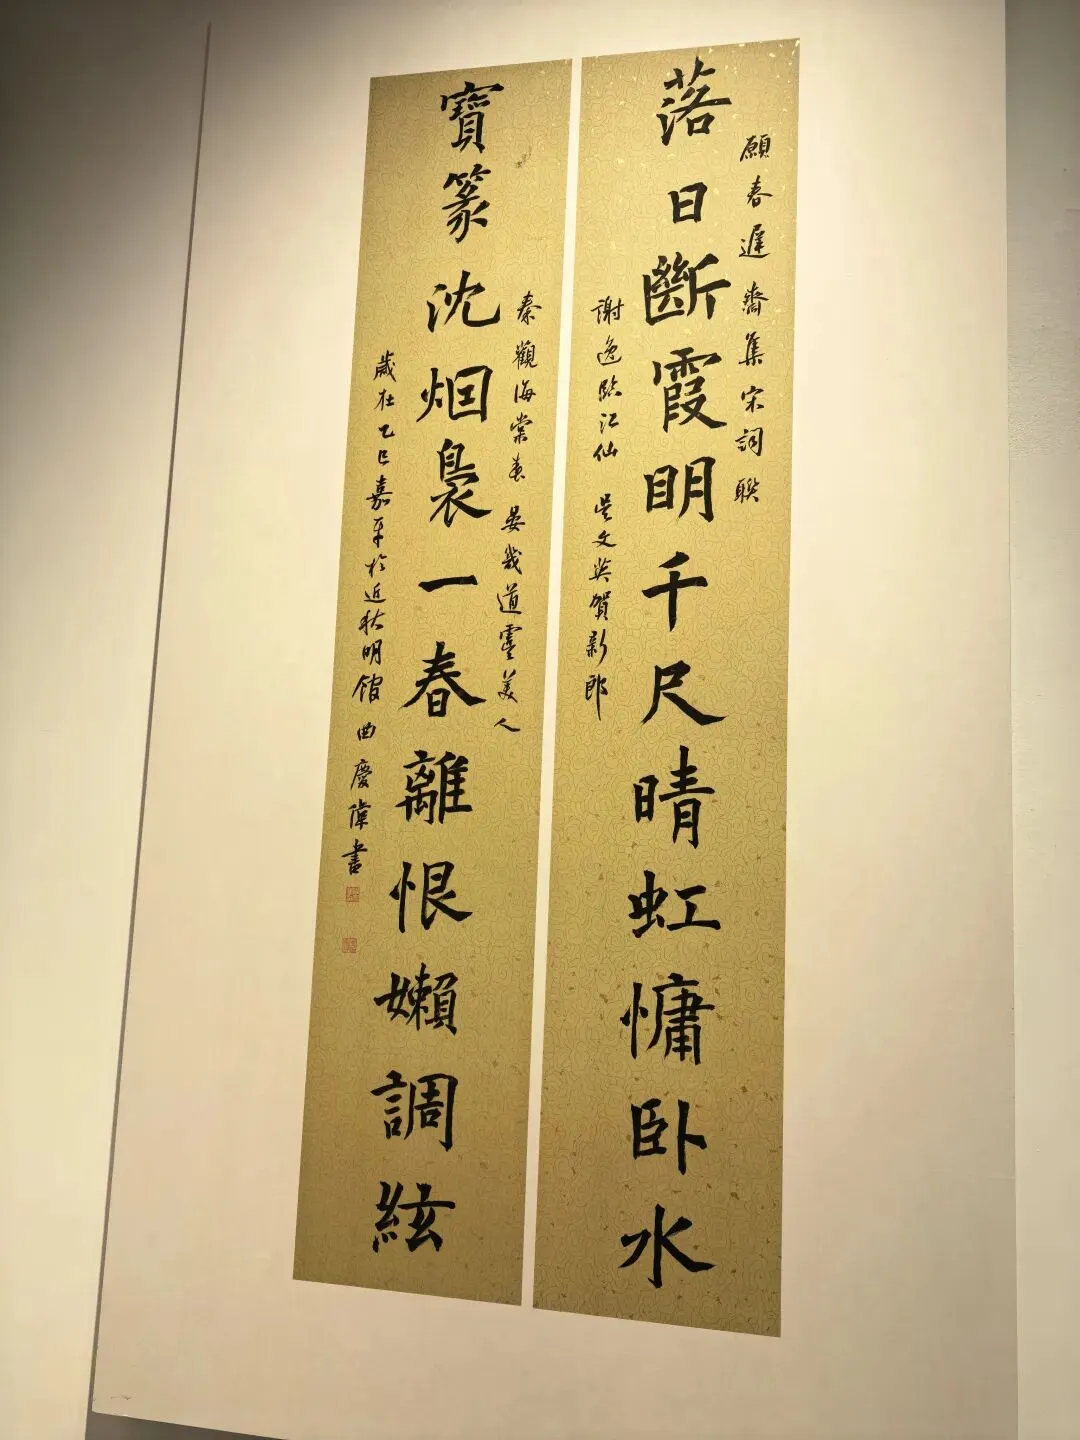 願春遲齋集宋詞聯
落日斷霞明千尺晴虹慵卧水
謝逸臨江仙 吳文英賀新郎
秦觀海棠春 晏幾道虞美人
寶篆沈烟裊一春離恨嬾調絃
歲在乙巳嘉平於近狄明館曲慶偉書